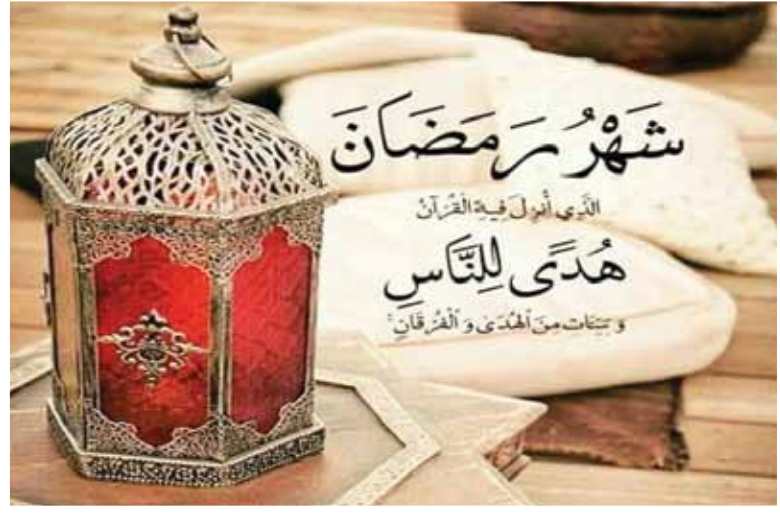 شَهْرُ رَمَضَانَ
الَّذِي أُنْزِلَ فِيهِ الْقُرْآنُ
هُدًى لِلنَّاسِ
وَ بَيِّنَات مِنَ الْهُدَىٰ وَ الْفُرْقَانِ